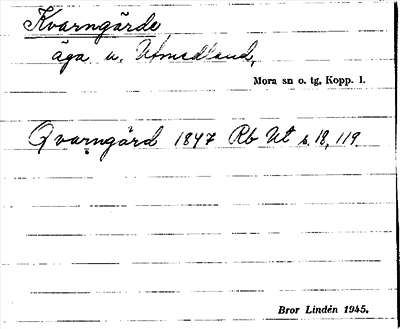 Kvarngärde
äga u. Utmedland,
Mora sn o. tg, Kopp. l.
Qvarngärd 1847 Rb Ut s. 18, 119.
Bror Lindén 1945.